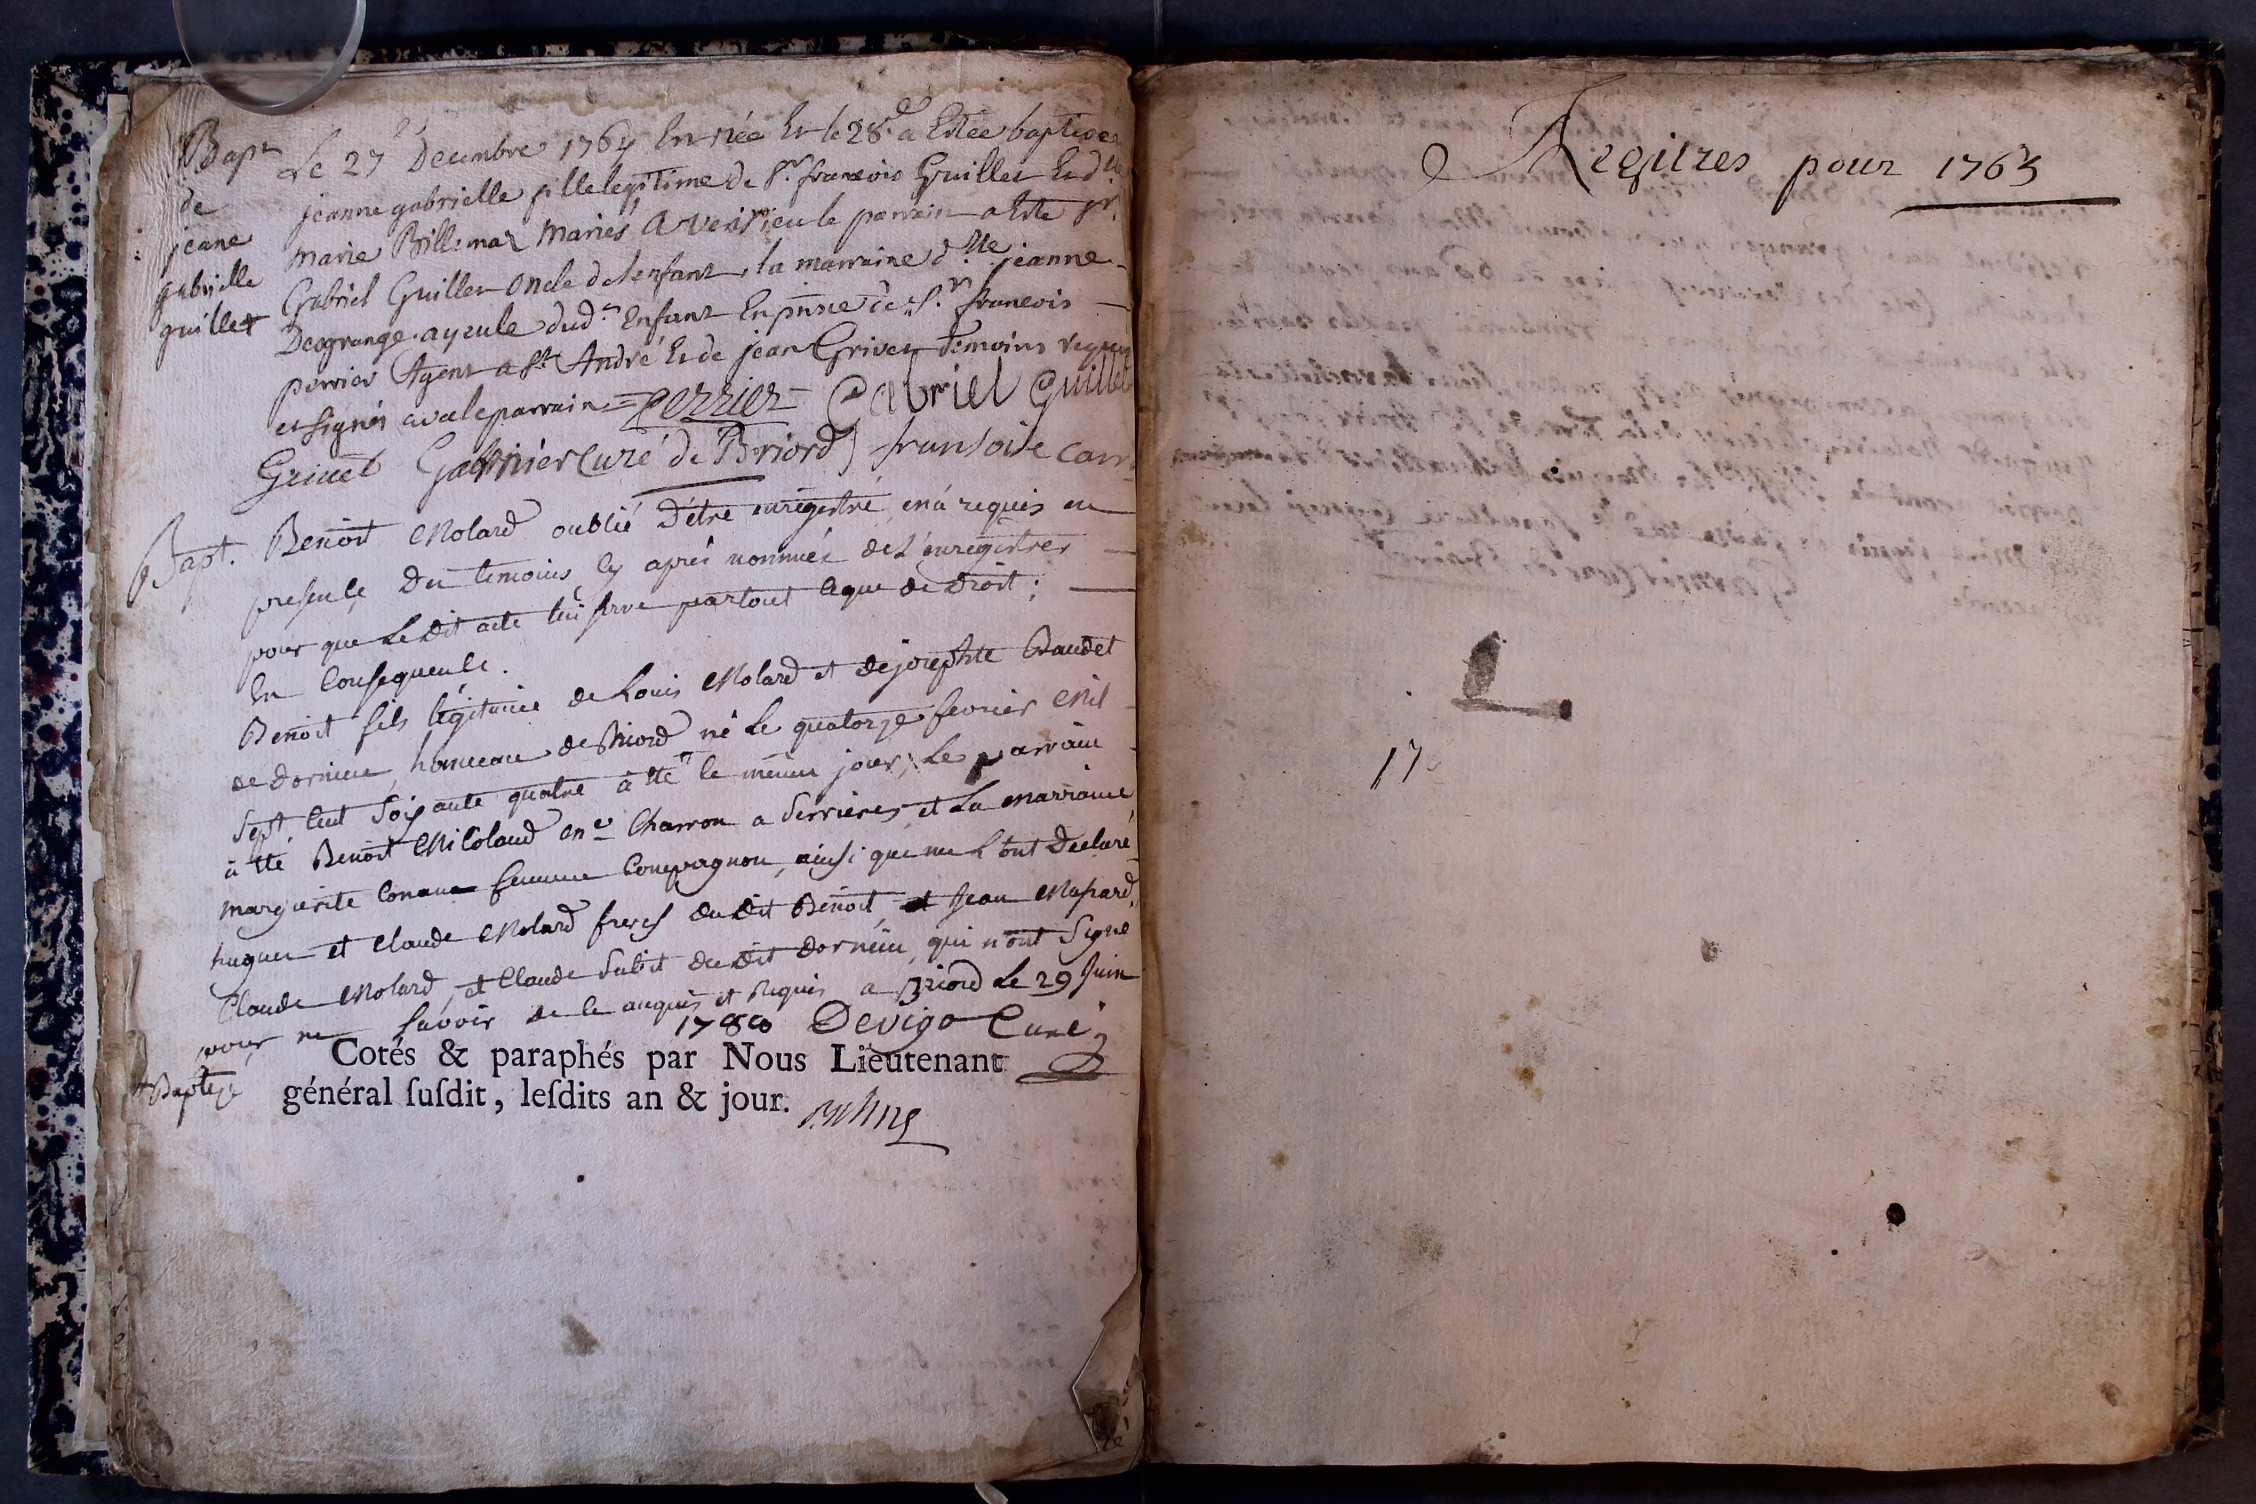 Bapt
de
jeane
gabrielle
guillet
Le 27 Decembre 1764 En née Et le 28e a Estee baptisee
jeanne gabrielle fille legitime de Sr. francois Guillet Et dlle
marie Billemaz Mariés A Verisieu le parrain a Este Sr.
Gabriel Guillet Oncle de lenfant, la marraine dlle jeanne
Desgrange ayeule dud. Enfant En pnce de Sr. francois
perrier Agent a St. André Et de jean Grivet temoins requis
et signés avec le parrain = perrier Gabriel Guillet
Grivet Garnier Curé de Briord) fransoise
Bapt. Benoit Molard oublié D'être enregistré, m'a requis en
presence Des temoins cy aprés nommés de L'enregistrer
pour que Le Dit acte lui serve partout ce que de Droit;
En Consequence.
Benoit fils légitime de Louis Molard et de josephte Baudet
de dornieu, hameau de Briord né Le quatorze fevrier Mil
Sept Cent Soixante quatre à été le même jour; Le parrain
à été Benoit Micoland Charron a Serrieres, et La Marraine
Marguerite femme Compagnon, ainsi que me L'ont Declaré
hugues et Claude Molard freres du Dit Benoit, et Jean
Claude Molard, et Claude Subit du Dit Dornieu, qui n'ont Signé
pour ne Savoir de le enquis et Requis a Briord Le 29 Juin
1788 Devigo Curé
+ Baptisé
Cotés & paraphés par Nous Lieutenant
général susdit, lesdits an & jour.
Regitres pour 1765
17